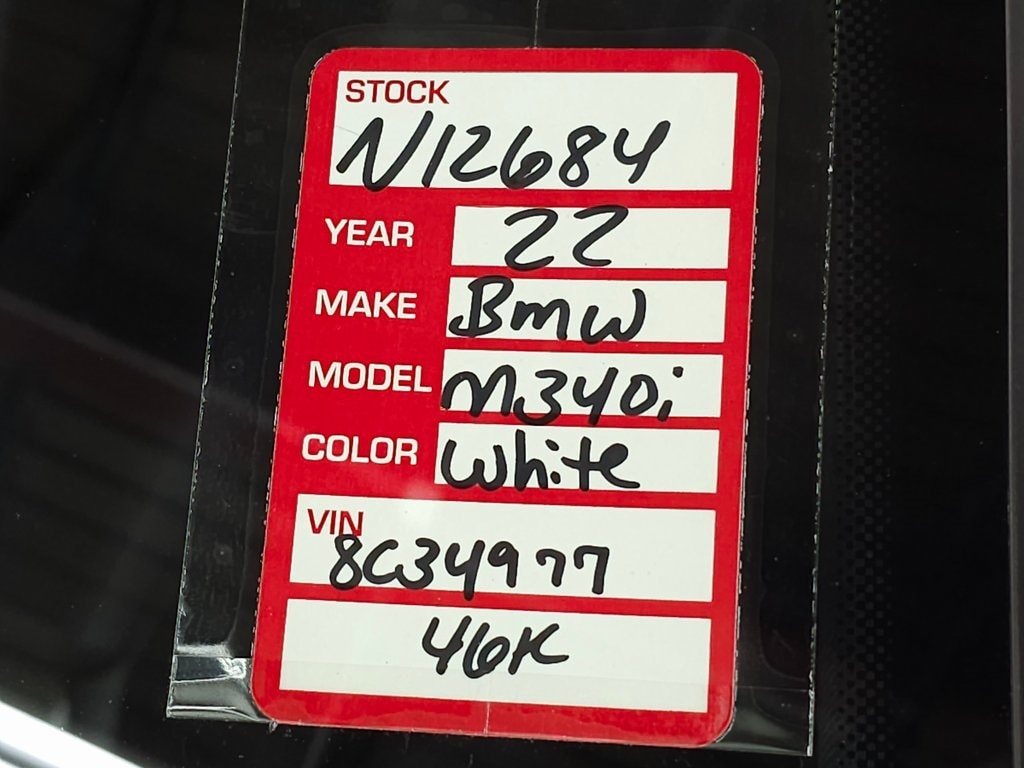 STOCK
N12684
YEAR 22
MAKE BMW
MODEL M340i
COLOR White
VIN
8C34977
46K